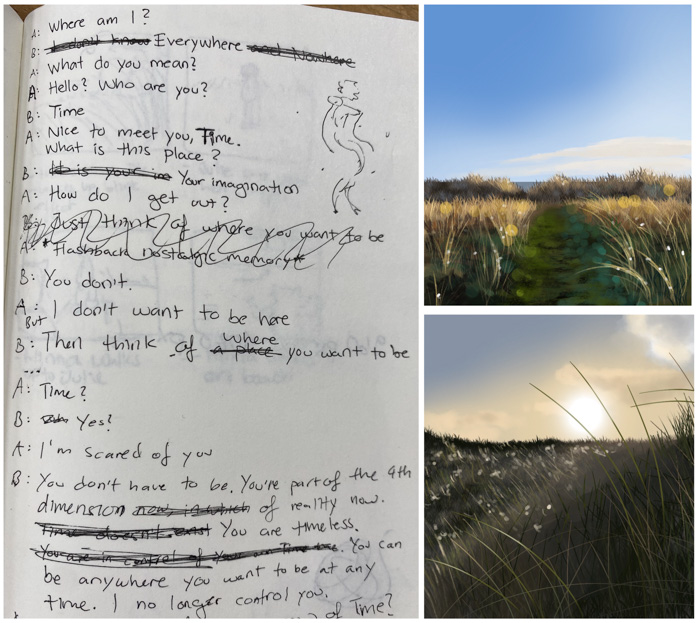 A: Where am I?
B: I don't know Everywhere and Nowhere
A: What do you mean?
A: Hello? Who are you?
B: Time
A: Nice to meet you, Time.
What is this place?
B: It is your im Your imagination
A: How do I get out?
B: Just think of where you want to be
A: *Flashback nostalgic memory*
B: You don't.
A: I don't want to be here
But
B: Then think of a place where you want to be
...
A: Time?
B: Yes?
A: I'm scared of you
B: You don't have to be. You're part of the 4th
dimension now in which of reality now.
Time doesn't exist You are timeless.
You are in control of. You can
be anywhere you want to be at any
time. I no longer control you.
of Time?